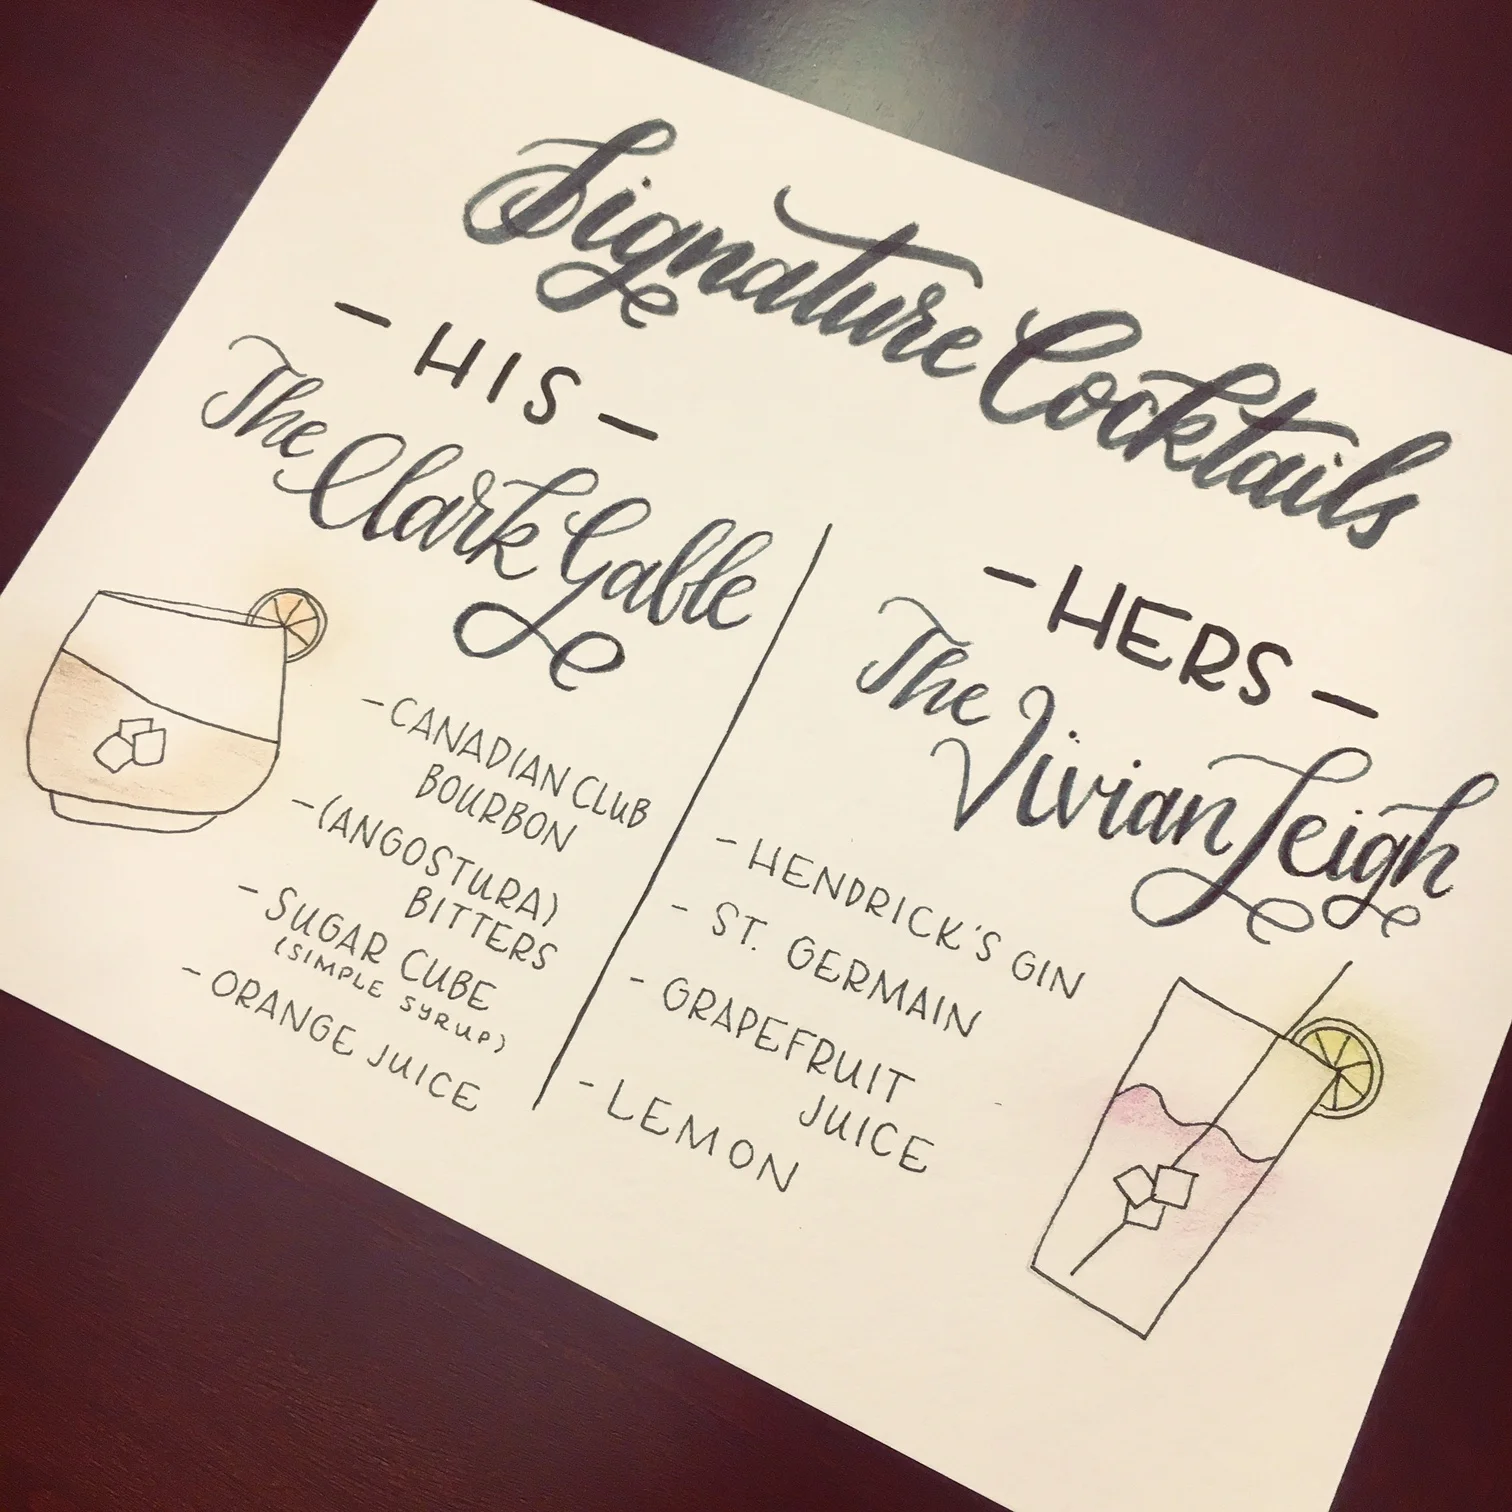 Signature Cocktails
- HIS -
The Clark Gable
- CANADIAN CLUB
BOURBON
- (ANGOSTURA)
BITTERS
- SUGAR CUBE
(SIMPLE SYRUP)
- ORANGE JUICE
- HERS -
The Vivian Leigh
- HENDRICK'S GIN
- ST. GERMAIN
- GRAPEFRUIT
JUICE
- LEMON